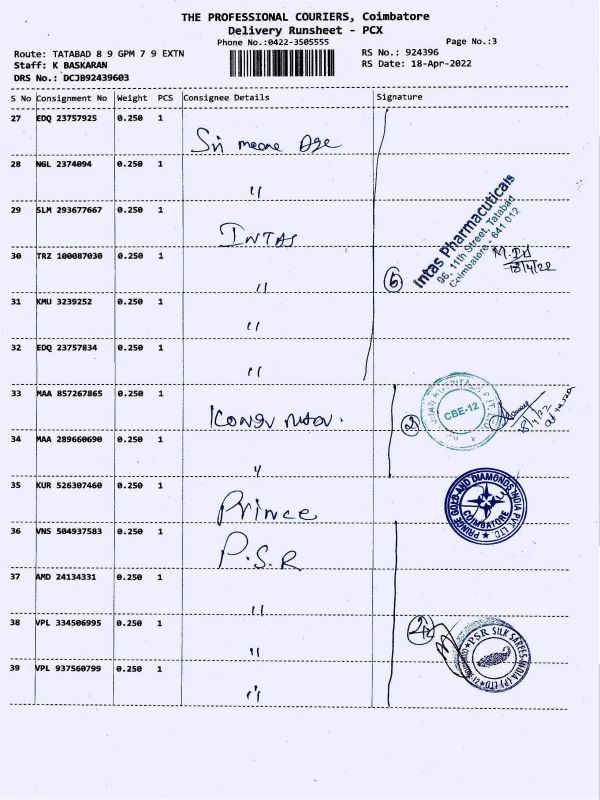 THE PROFESSIONAL COURIERS, Coimbatore
Delivery Runsheet - PCX
Phone No.:0422-3505555
Page No.:3
Route: TATABAD 8 9 GPM 7 9 EXTN
RS No.: 924396
Staff: K BASKARAN
RS Date: 18-Apr-2022
DRS No.: DCJB92439603
S No Consignment No Weight PCS Consignee Details Signature
27 EDQ 23757925 0.250 1
Sri
28 NGL 2374094 0.250 1
"
29 SLM 293677667 0.250 1
INTAS
Intas Pharmaceuticals
96, 11th Street, Tatabad
Coimbatore - 641 012
30 TRZ 100087030 0.250 1
"
6
18/4/22
31 KMU 3239252 0.250 1
"
32 EDQ 23757834 0.250 1
"
33 MAA 857267865 0.250 1
2
CBE-12
18/4/22
34 MAA 289660690 0.250 1
"
35 KUR 526307460 0.250 1
Prince
PRINCE GOLD AND DIAMONDS INDIA PVT. LTD.
COIMBATORE
36 VNS 504937583 0.250 1
P.S.R
37 AMD 24134331 0.250 1
"
38 VPL 334506995 0.250 1
"
P.S.R. SILK SAREES INDIA (P) LTD
39 VPL 937560799 0.250 1
"